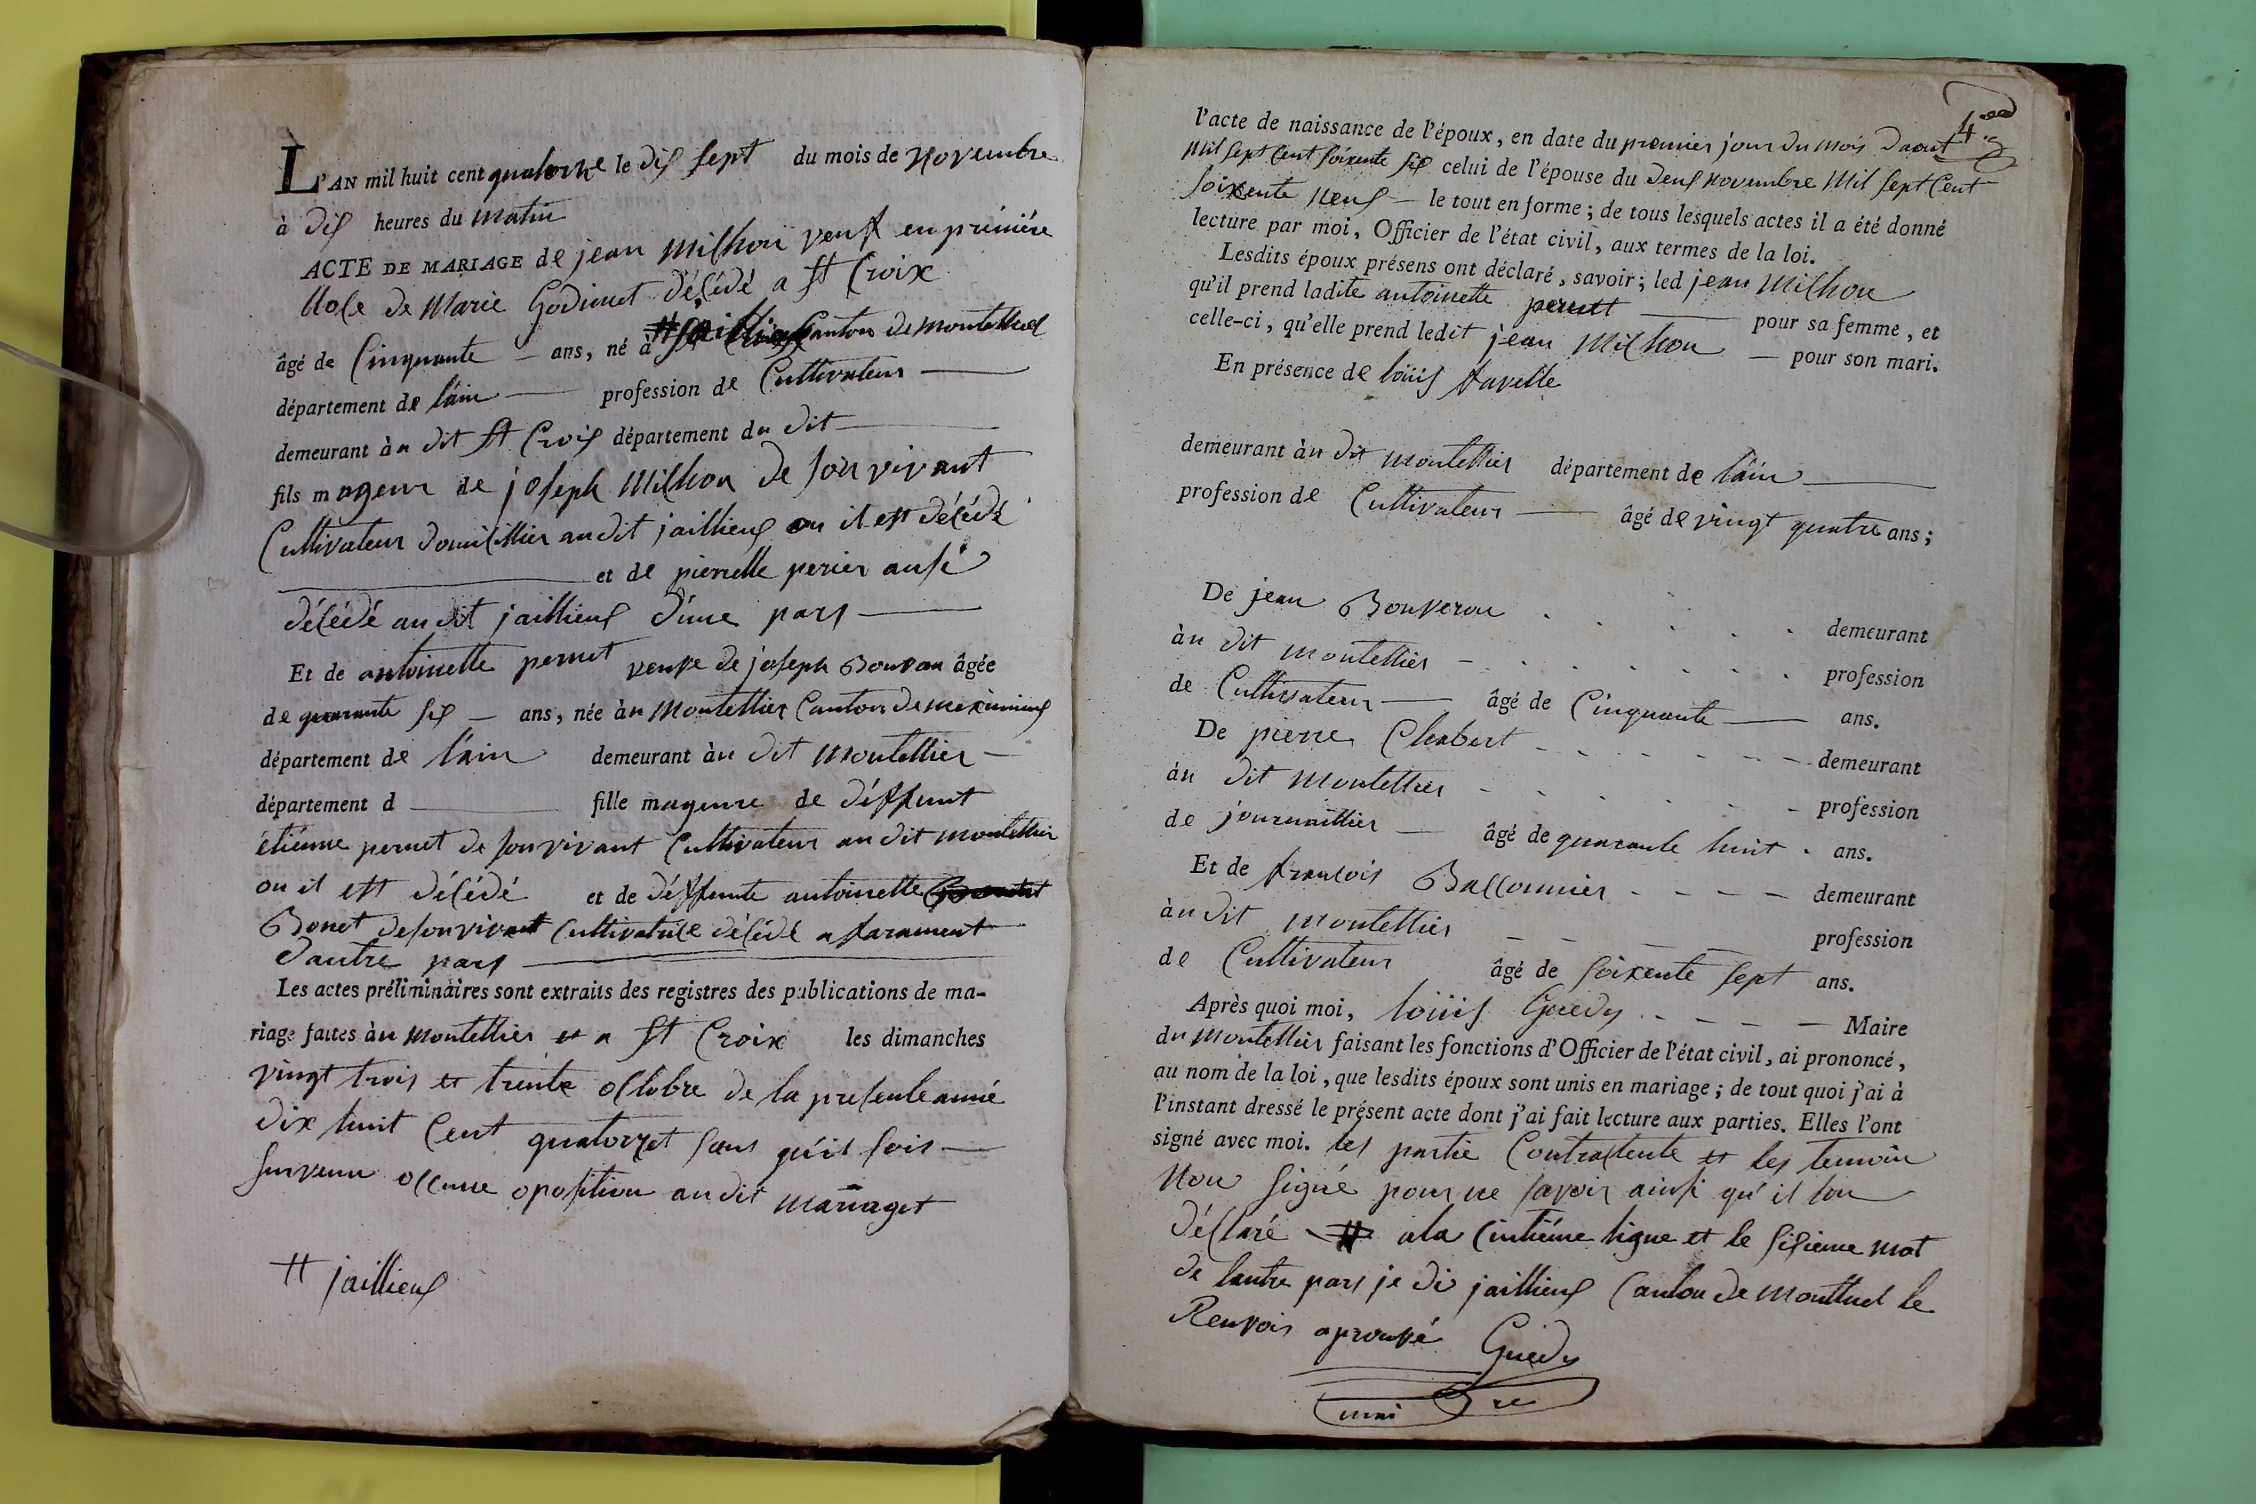 L'AN mil huit cent quatorze le dix sept du mois de Novembre
à dix heures du matin
ACTE DE MARIAGE de jean Milhon veuf en première
Nose de Marie Godimet décédé a st Croix
âgé de Cinquante — ans, né à # Canton de montelluel
département de lain — profession de Cultivateur —
demeurant àu dit st Croix département du dit —
fils mageur de joseph Milhon de son vivant
Cultivateur domicillier au dit jaillieux ou il est décédé
et de pierrette perier aussi
décédé au dit jaillieux d'une pars —
Et de antoinette pernet veuve de joseph Bouvan âgée
de quarante six — ans, née àu Montellier Canton de meximieux
département de l'ain demeurant àu dit montellier —
département d — fille mageure de déffunt
étiénne pernet de son vivant Cultivateur au dit montellier
ou il est décédé et de déffunte antoinette
Bonet de son vivant Cultivatrice décédé a faramant
dautre pars —
Les actes préliminaires sont extraits des registres des publications de ma-
riage faites àu montellier et a st Croix les dimanches
vingt trois et trente octobre de la presente anné
dix huit Cent quatorzet sans qu'il sois —
survenu occune oposition au dit mariaget
# jaillieux
4
l'acte de naissance de l'époux, en date du premier jour du mois daout
Mil sept Cent soixente six celui de l'épouse du deux novembre Mil sept Cent
soixente neuf — le tout en forme; de tous lesquels actes il a été donné
lecture par moi, Officier de l'état civil, aux termes de la loi.
Lesdits époux présens ont déclaré, savoir; led jean Milhon
qu'il prend ladite antoinette pernet — pour sa femme, et
celle-ci, qu'elle prend ledit jean Milhon — pour son mari.
En présence de loüis favelle
demeurant àu dit montellier département de l'ain —
profession de Cultivateur — âgé de vingt quatre ans;
De jean Bouveron demeurant
àu dit montellier — profession
de Cultivateur — âgé de Cinquante — ans.
De pierre Chabert demeurant
àu dit montellier profession
de journaillier — âgé de quarante huit ans.
Et de francois Ballonnier demeurant
àu dit montellier profession
de Cultivateur âgé de soixente sept ans.
Après quoi moi, loüis Guedy — Maire
du Montellier faisant les fonctions d'Officier de l'état civil, ai prononcé,
au nom de la loi, que lesdits époux sont unis en mariage; de tout quoi j'ai à
l'instant dressé le présent acte dont j'ai fait lecture aux parties. Elles l'ont
signé avec moi. les partie Contractente et les temoin
Non signé pour ne savoir ainsi qu'il lon
déclaré # ala Cintiéme ligne et le sixieme mot
de lautre pars je di jaillieux Canton de montluel le
Renvois aprouvé Guedy
maire